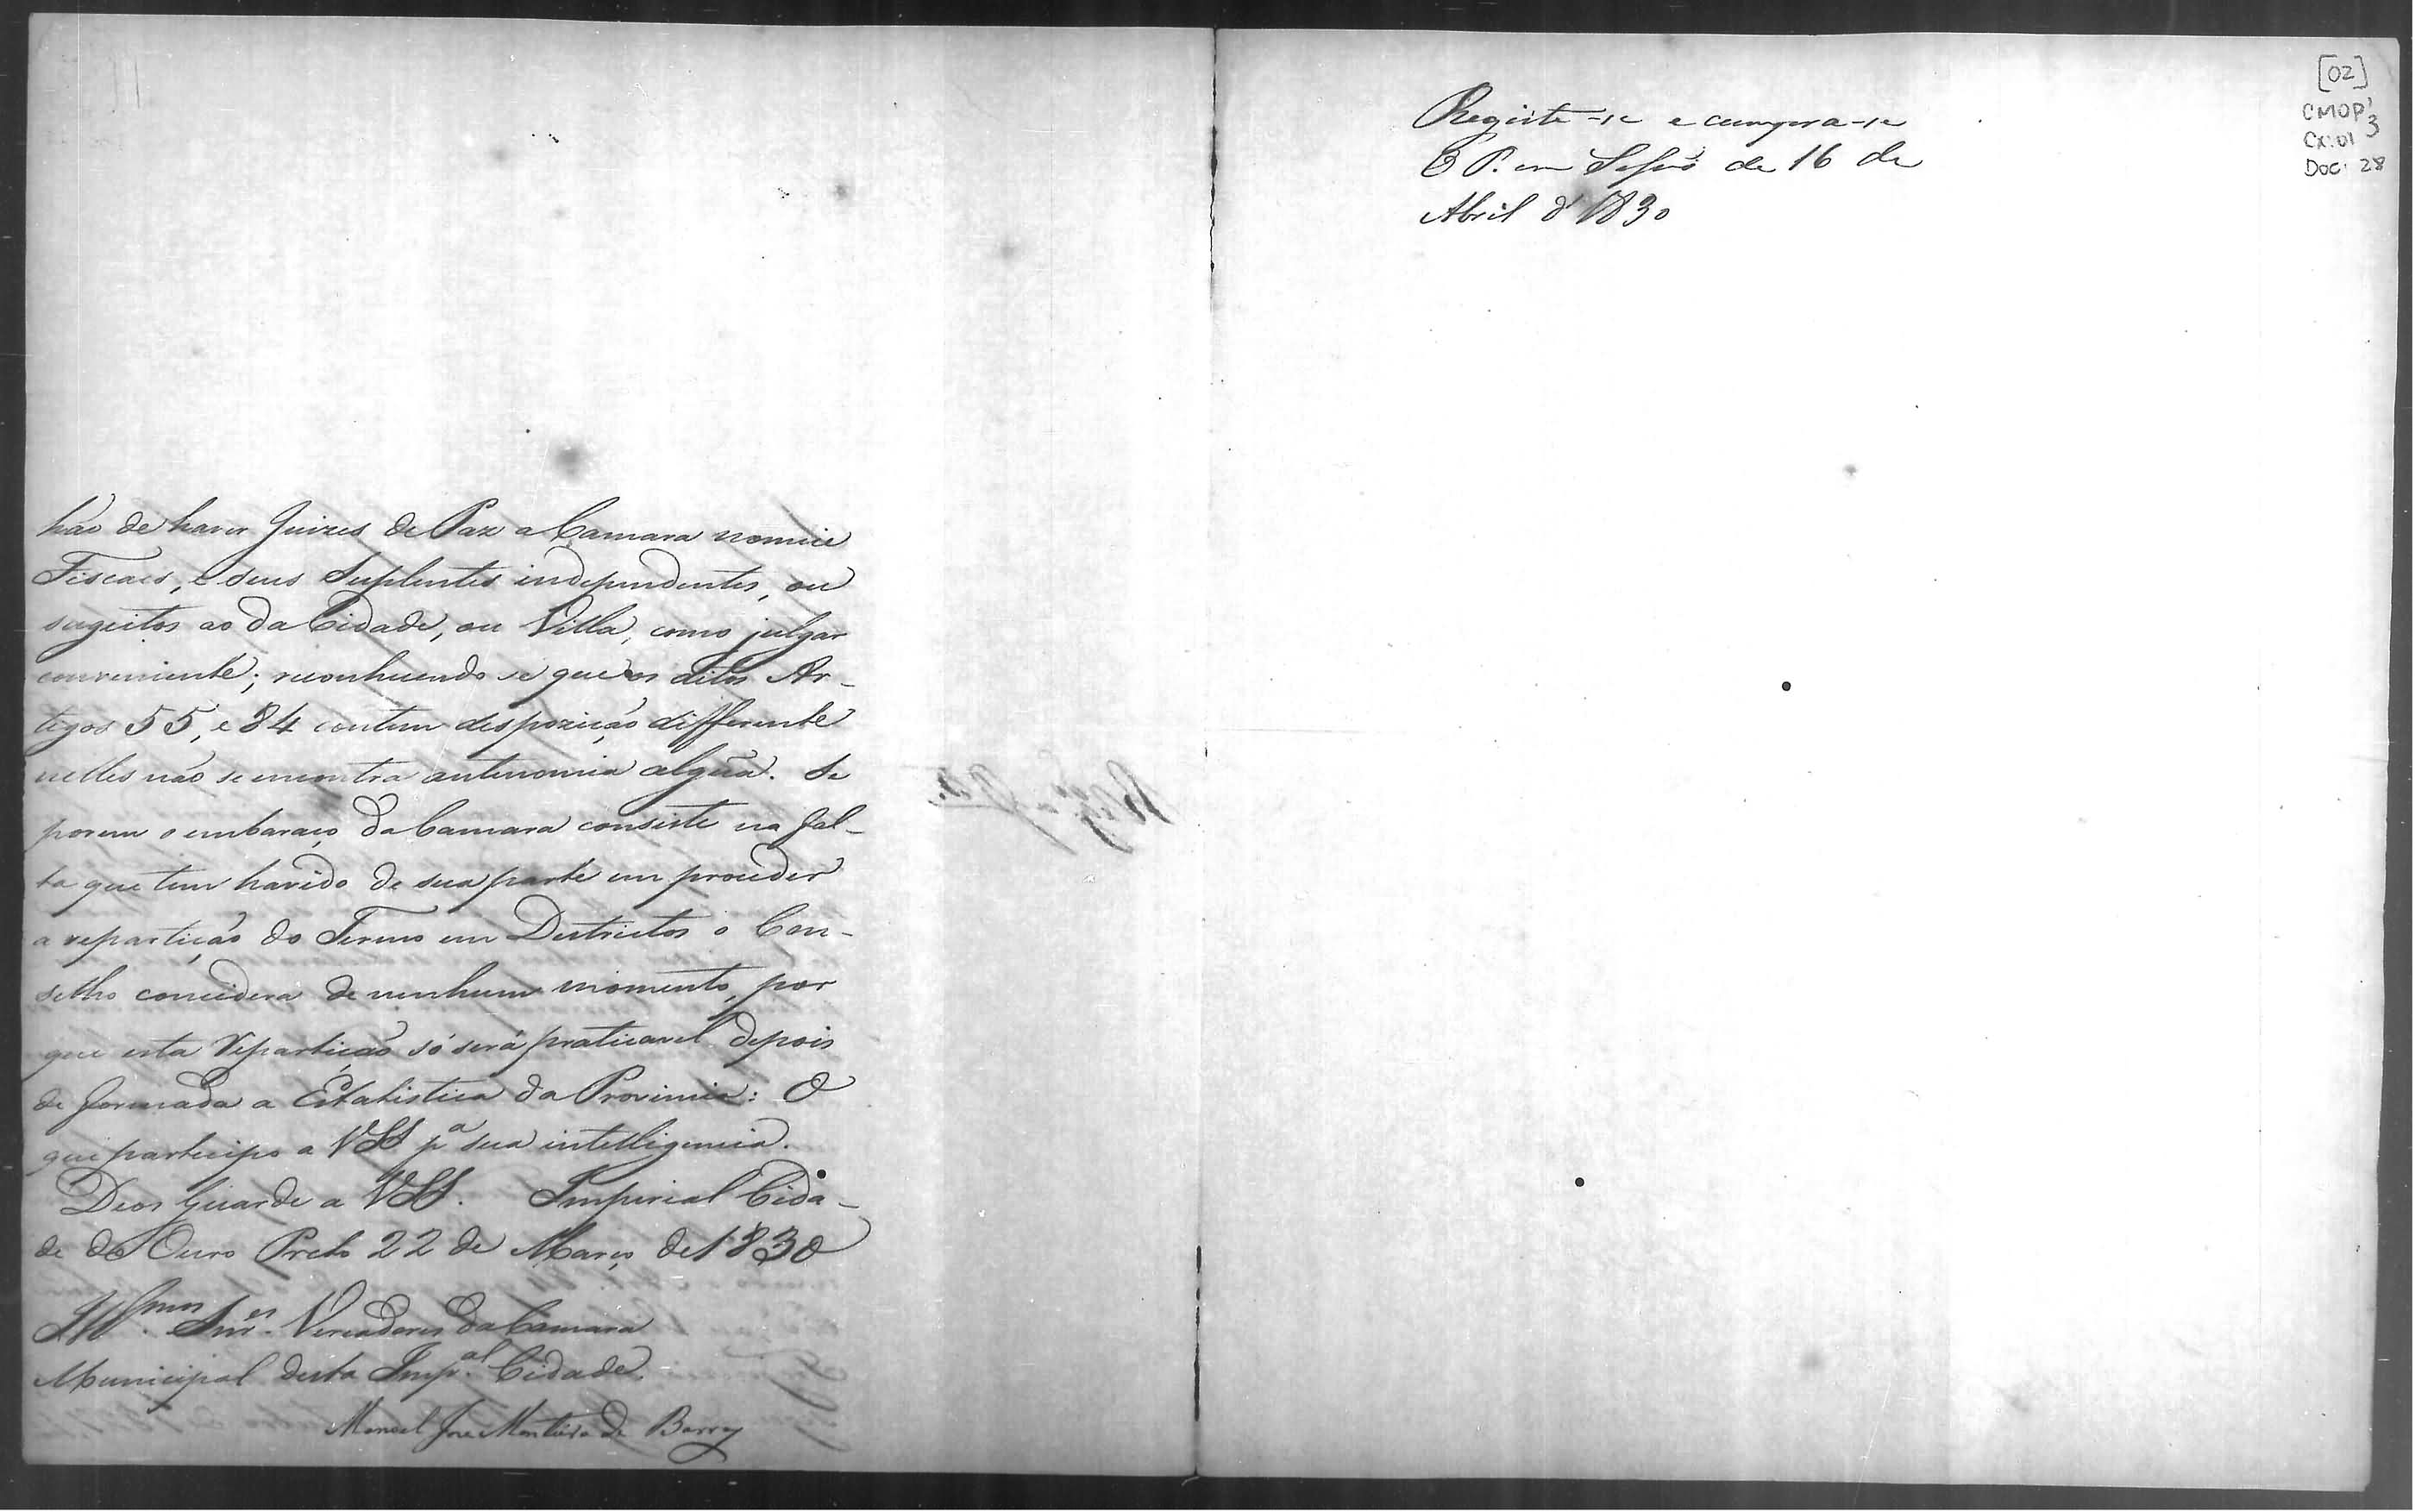 hão de haver Juizes de Paz a Camara nomeie
Fiscaes, e seus Suplentes independentes, ou
sugeitos ao da Cidade, ou Villa, como julgar
conveniente; reconhecendo se que os ditos Ar-
tigos 55, e 84 contem dispozição differente
nelles não se encontra antinomia algũa. Se
porem o embaraço da Camara consiste na fal-
ta que tem havido de sua parte em proceder
a repartição do Termo em Districtos o Con-
selho concidera de nenhum momento, por
que esta repartição só será praticavel depois
de formada a Estatistica da Provincia: O
que participo a VSS pª sua intelligencia.
Deos Guarde a VSS. Imperial Cida-
de do Ouro Preto 22 de Março de 1830
Illmos. Snres. Vereadores da Camara
Municipal desta Impal. Cidade.
Manoel Jose Monteiro de Barros
Registe-se e cumpra-se
O P. em Sessão de 16 de
Abril d' 1830
[02]
CMOP 1/3
Cx: 01
Doc: 28